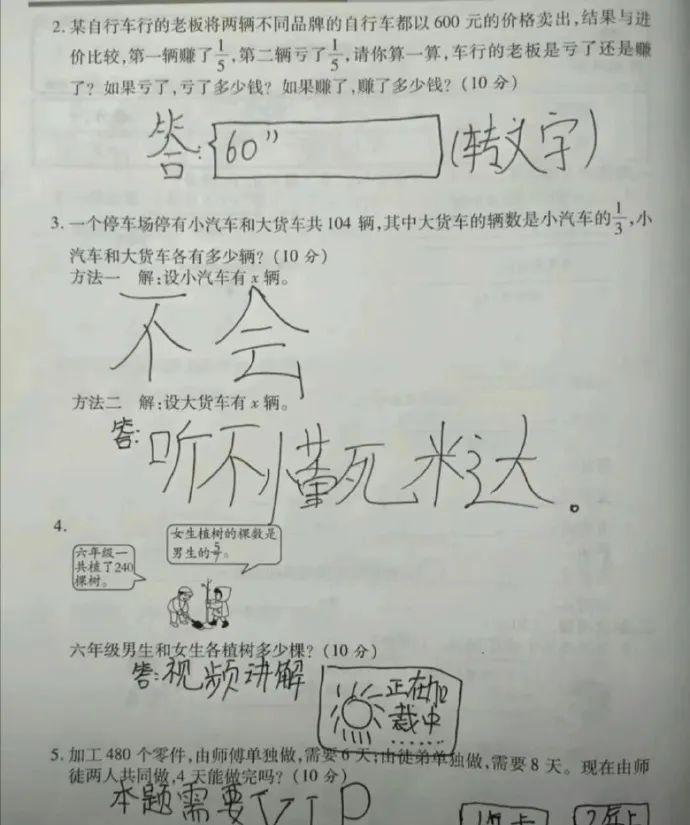 2. 某自行车行的老板将两辆不同品牌的自行车都以 600 元的价格卖出,结果与进
价比较,第一辆赚了1/5,第二辆亏了1/5,请你算一算,车行的老板是亏了还是赚
了?如果亏了,亏了多少钱?如果赚了,赚了多少钱?(10 分)
答:60” (转文字)
3. 一个停车场停有小汽车和大货车共 104 辆,其中大货车的辆数是小汽车的1/3,小
汽车和大货车各有多少辆?(10 分)
方法一 解:设小汽车有 x 辆。
不会
方法二 解:设大货车有 x 辆。
答:听不懂死米达。
4.
女生植树的棵数是
男生的5/7。
六年级一
共植了240
棵树。
六年级男生和女生各植树多少棵?(10 分)
答:视频讲解
正在加
载中
......
5. 加工 480 个零件,由师傅单独做,需要 6 天;由徒弟单独做,需要 8 天。现在由师
徒两人共同做,4 天能做完吗?(10 分)
本题需要VIP